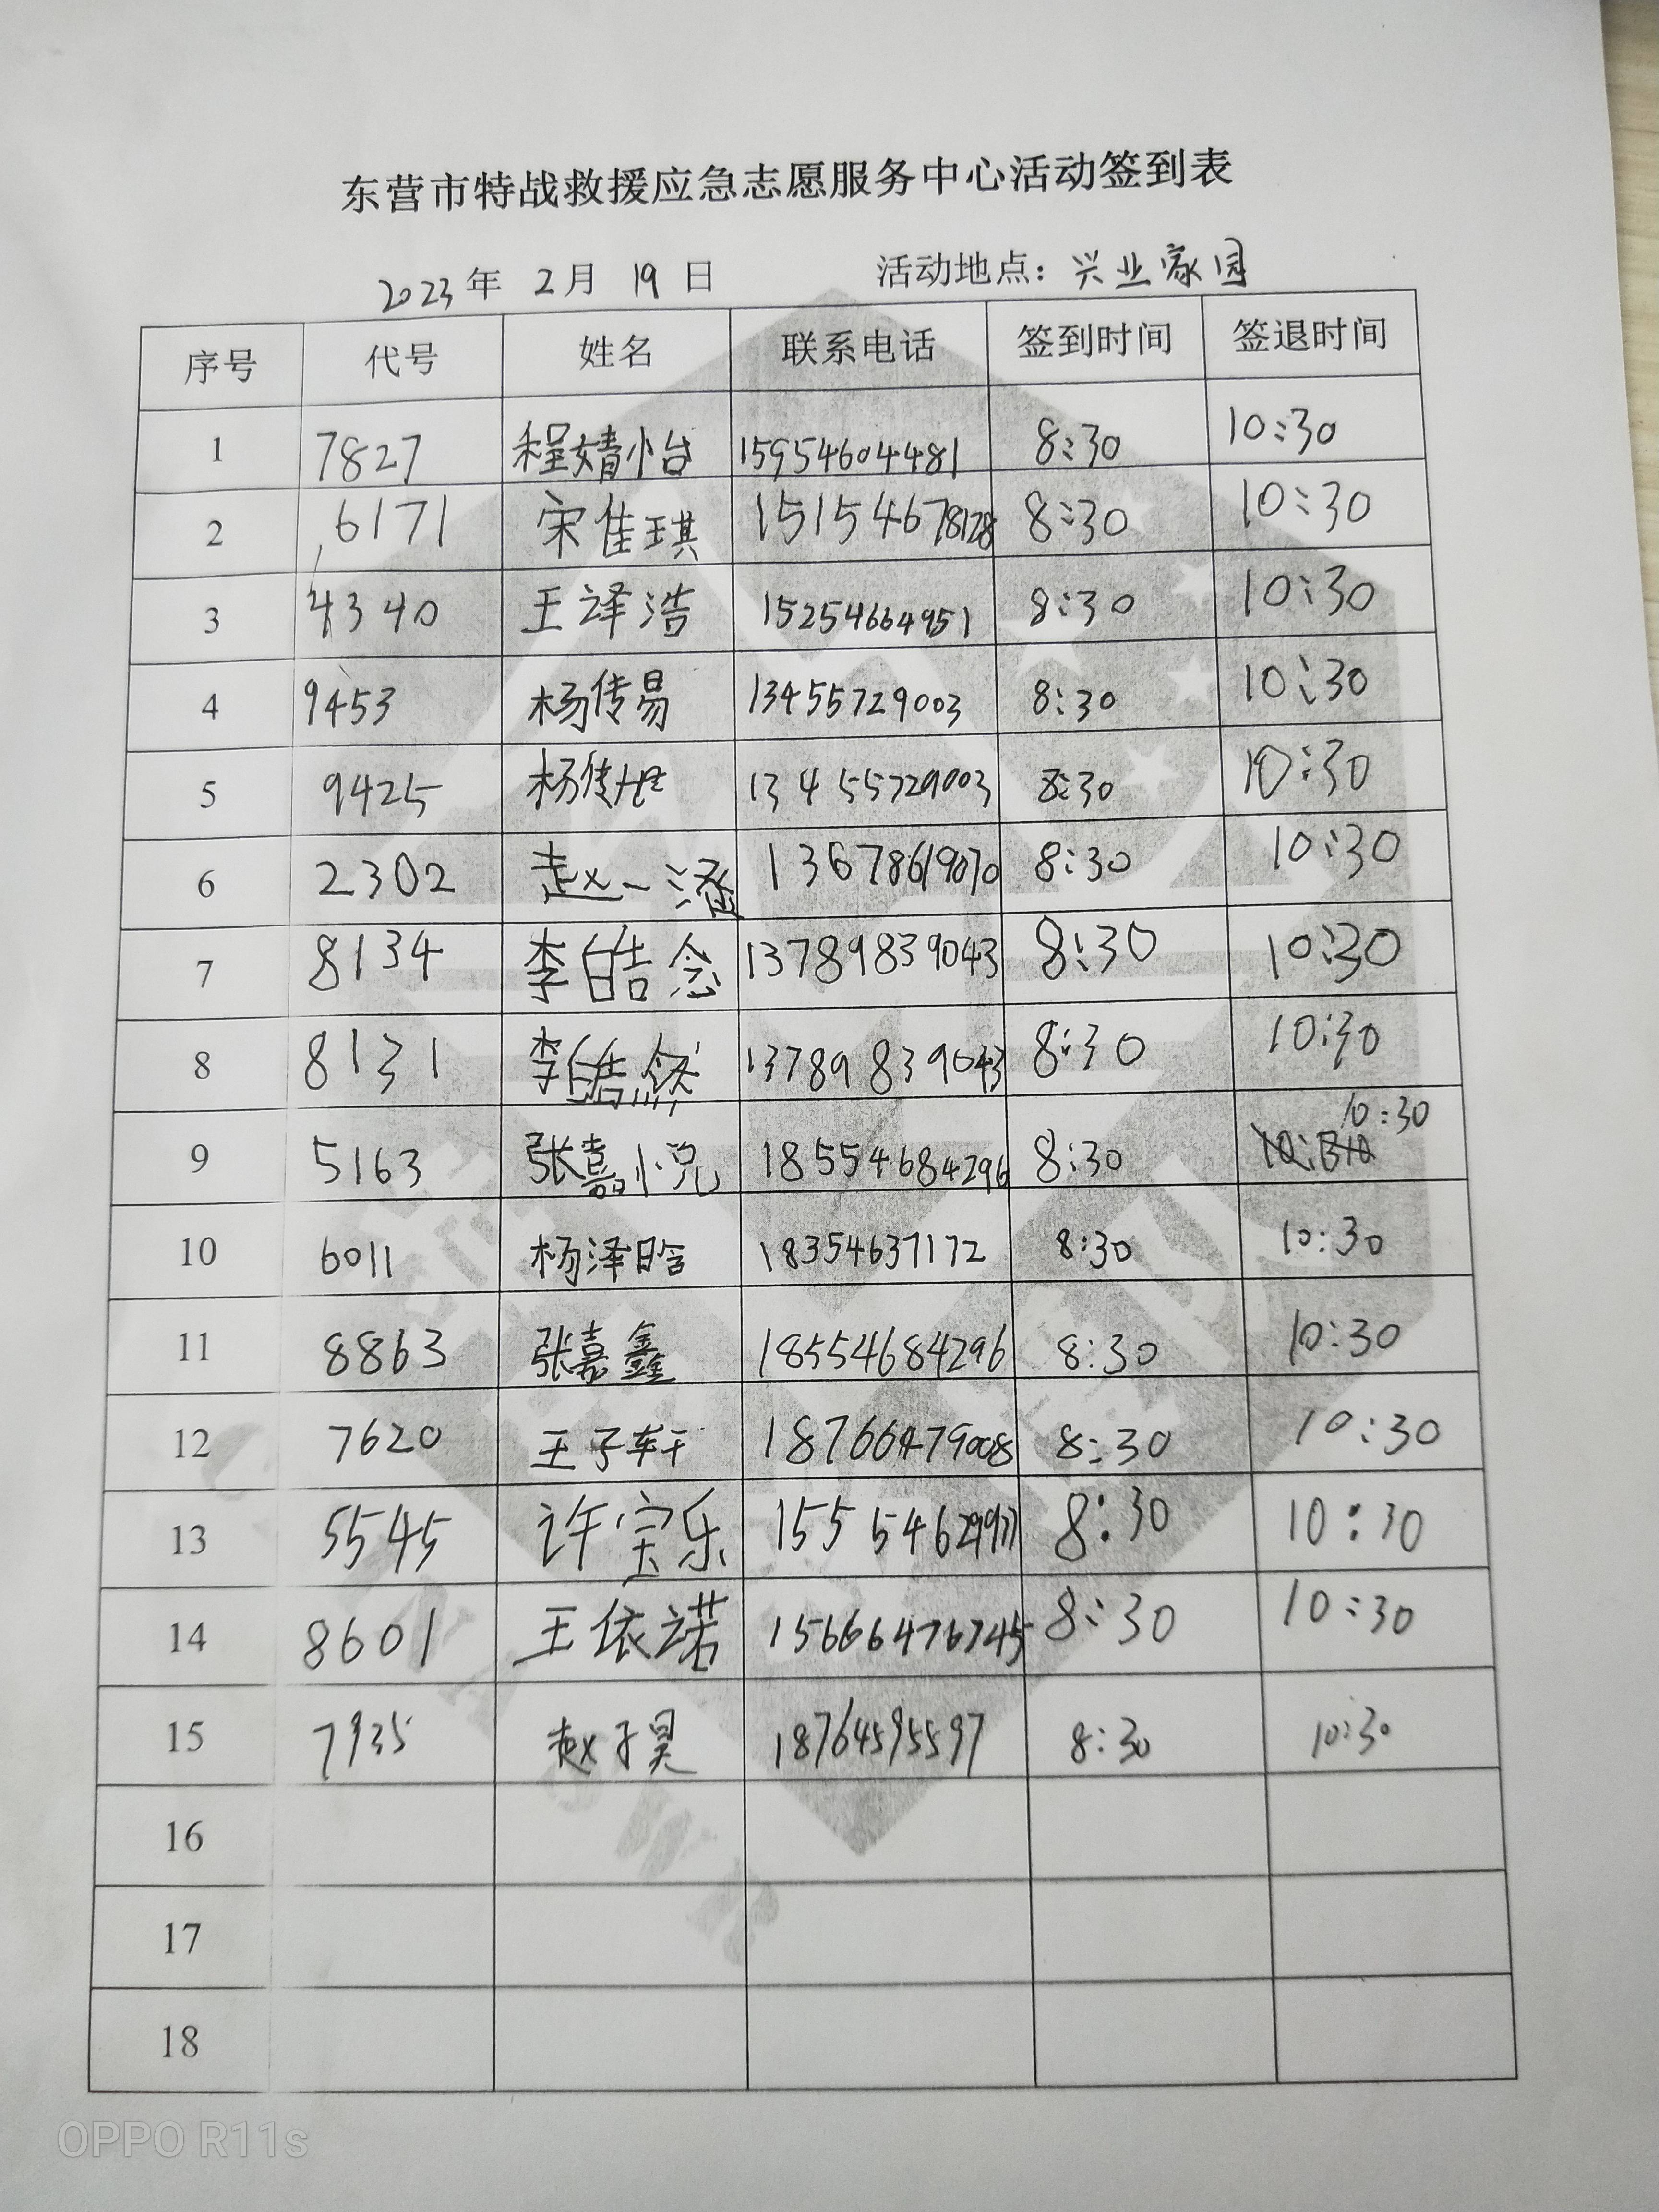 东营市特战救援应急志愿服务中心活动签到表
2023年 2月 19 日 活动地点：兴业家园
序号 代号 姓名 联系电话 签到时间 签退时间
1 7827 程婧怡 15954604481 8:30 10:30
2 6171 宋佳琪 15154678128 8:30 10:30
3 4340 王译浩 15254664951 8:30 10:30
4 9453 杨传易 13455729003 8:30 10:30
5 9425 杨传旭 13455729003 8:30 10:30
6 2302 赵一涵 13678619070 8:30 10:30
7 8134 李皓念 13789839043 8:30 10:30
8 8131 李皓然 13789839043 8:30 10:30
9 5163 张嘉悦 18554684296 8:30 10:30
10 6011 杨泽晗 18354637172 8:30 10:30
11 8863 张嘉鑫 18554684296 8:30 10:30
12 7620 王子轩 18766479008 8:30 10:30
13 5545 许宝乐 8:30 10:30
14 8601 王依诺 15666476745 8:30 10:30
15 7935 赵子昊 18764595597 8:30 10:30
16
17
18
OPPO R11s